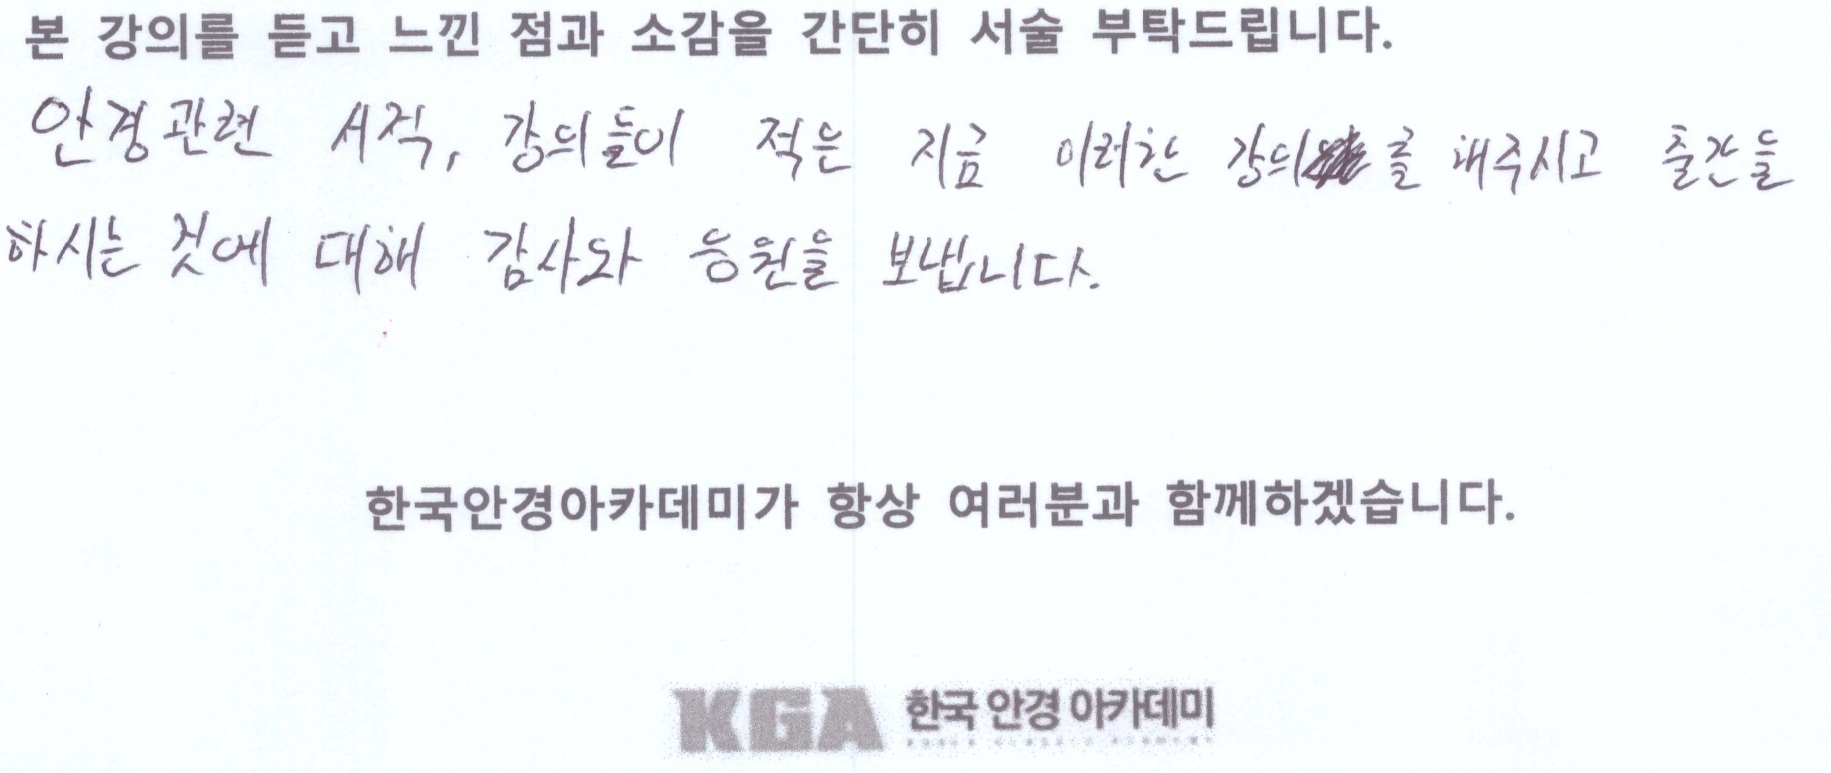 본 강의를 듣고 느낀 점과 소감을 간단히 서술 부탁드립니다.
안경관련 서적, 강의들이 적은 지금 이러한 강의를 해주시고 출간을
하시는 것에 대해 감사와 응원을 보냅니다.
한국안경아카데미가 항상 여러분과 함께하겠습니다.
KGA 한국 안경 아카데미